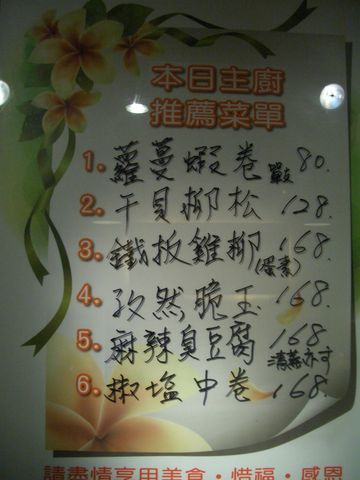 本日主廚
推薦菜單
1. 蘿蔓蝦卷 單支 80.
2. 干貝柳松 128.
3. 鐵扳雞柳 168.
(蛋素)
4. 孜然脆玉 168.
5. 麻辣臭豆腐 168
清蒸亦可
6. 椒塩中卷 168.
請盡情享用美食‧惜福‧感恩